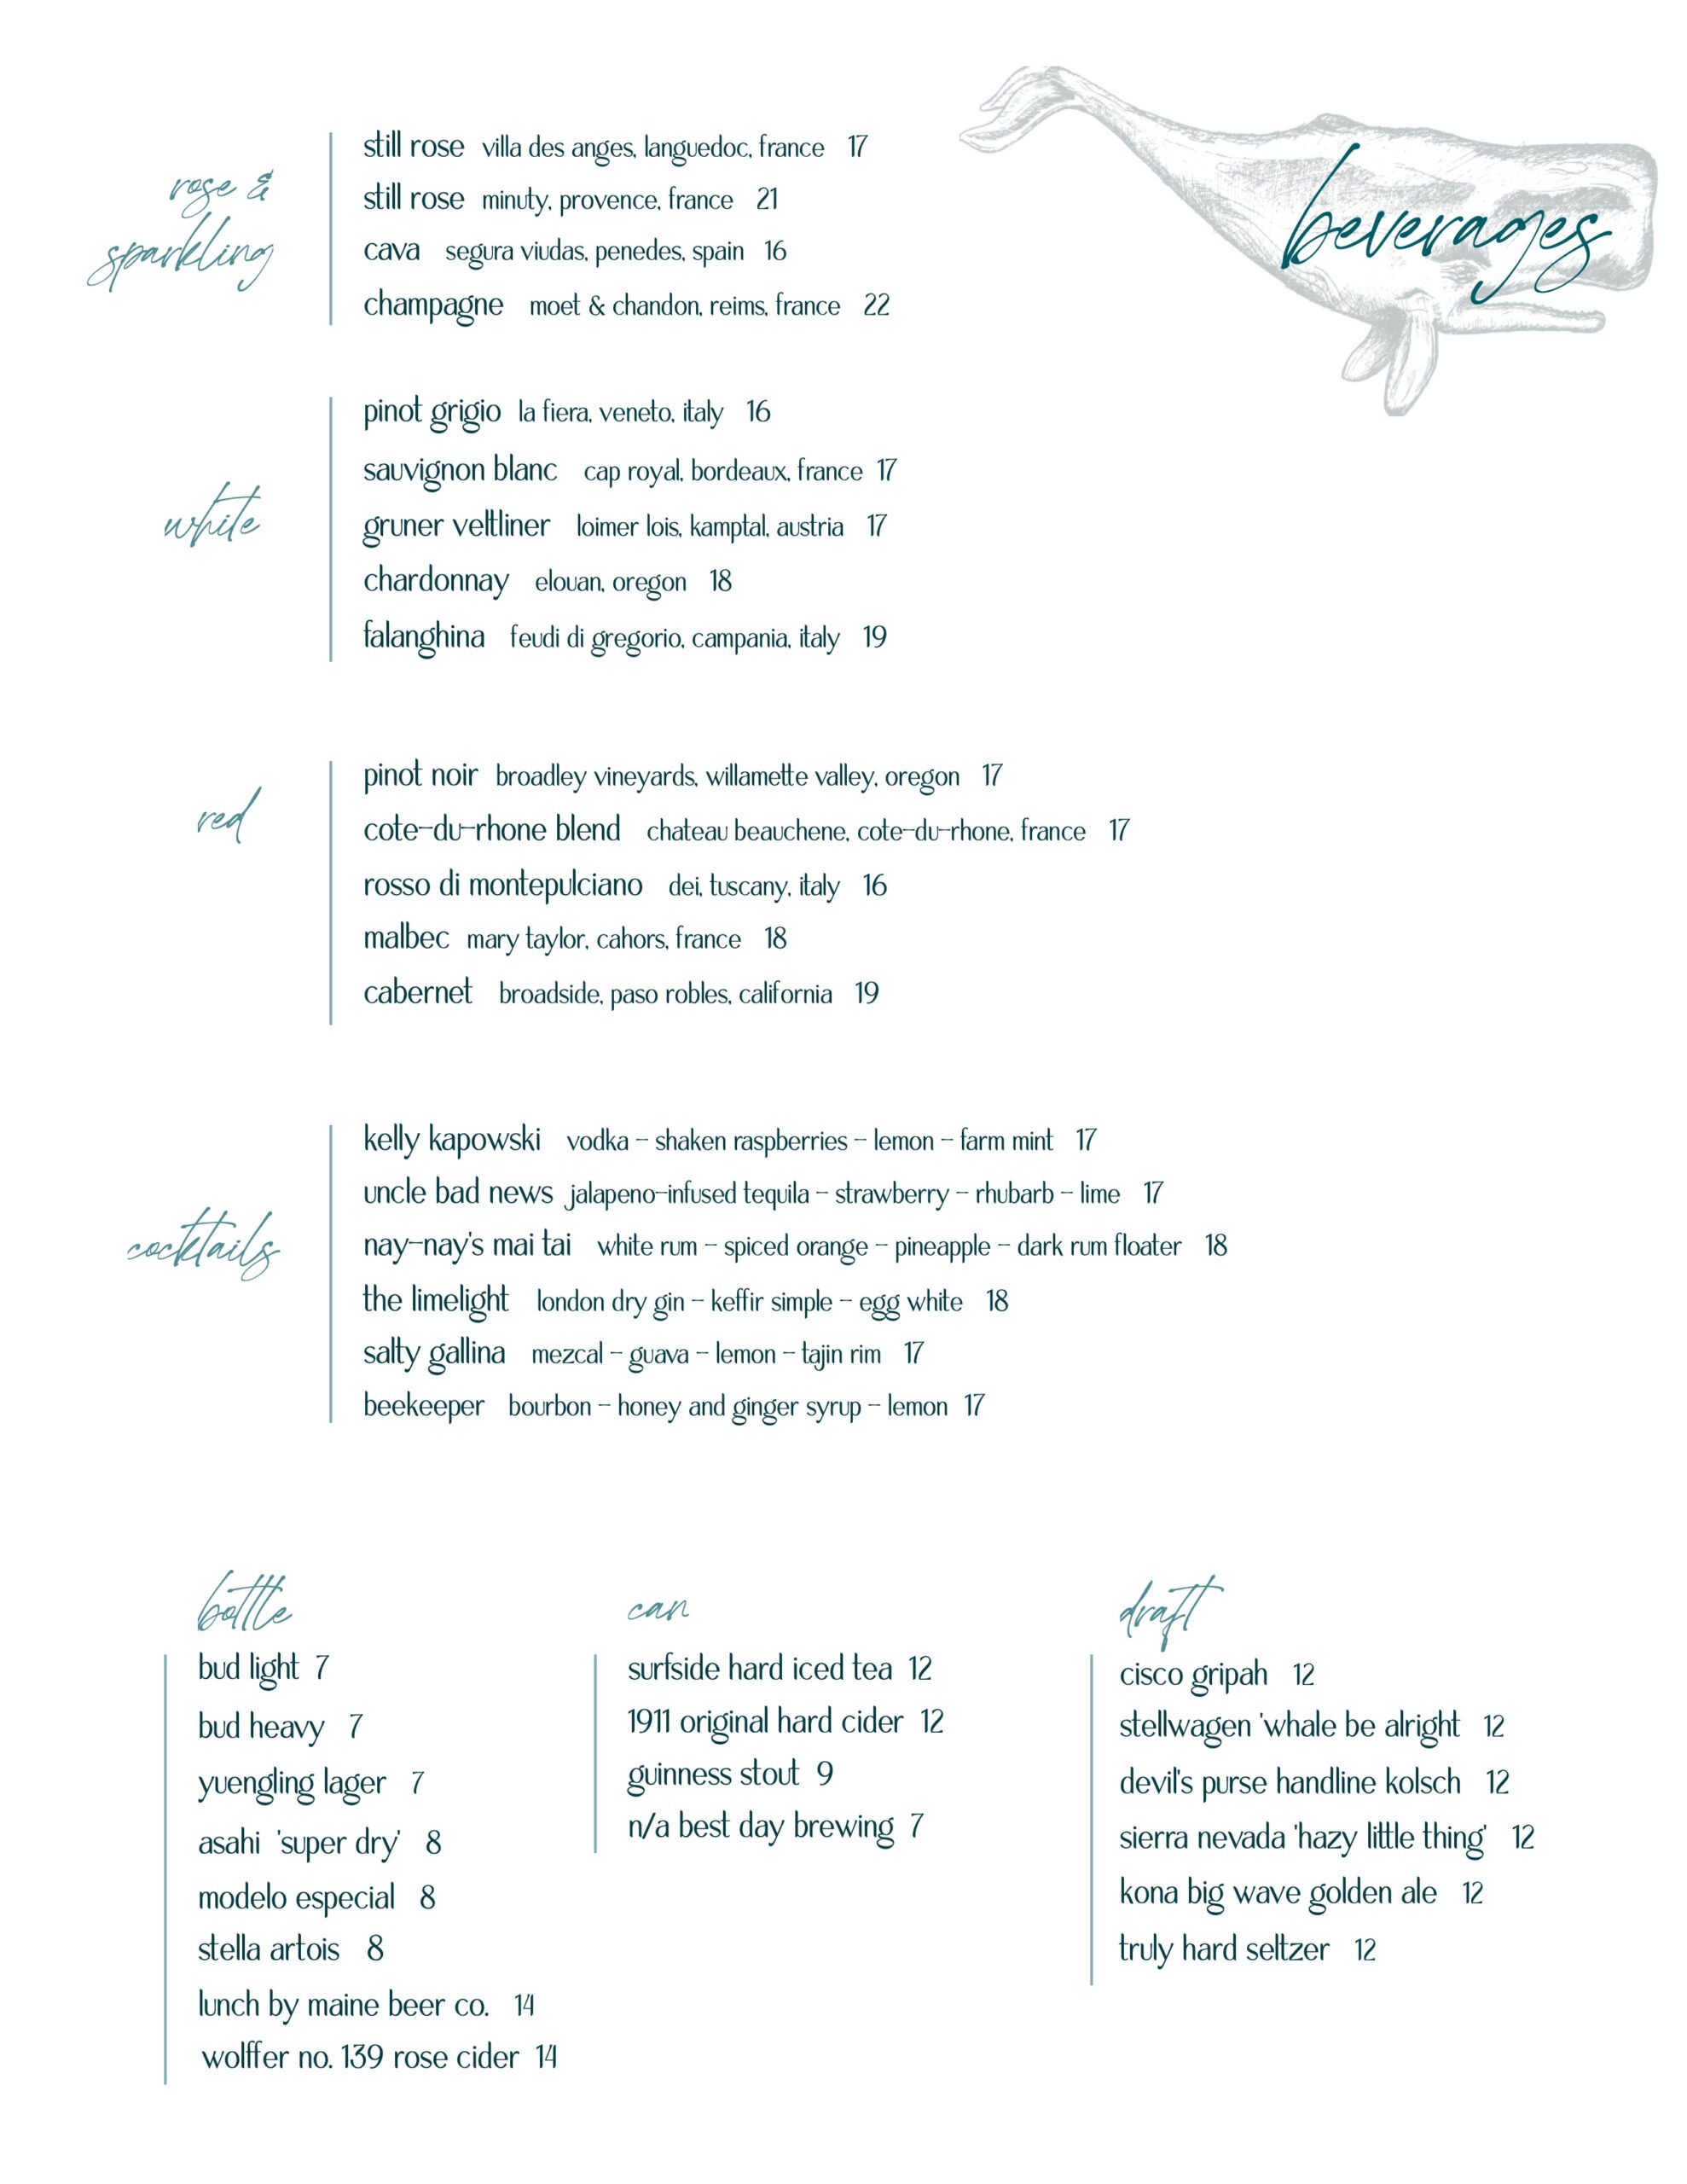 beverages
rose &
sparkling
still rose villa des anges, languedoc, france 17
still rose minuty, provence, france 21
cava segura viudas, penedes, spain 16
champagne moet & chandon, reims, france 22
white
pinot grigio la fiera, veneto, italy 16
sauvignon blanc cap royal, bordeaux, france 17
gruner veltliner loimer lois, kamptal, austria 17
chardonnay elouan, oregon 18
falanghina feudi di gregorio, campania, italy 19
red
pinot noir broadley vineyards, willamette valley, oregon 17
cote-du-rhone blend chateau beauchene, cote-du-rhone, france 17
rosso di montepulciano dei, tuscany, italy 16
malbec mary taylor, cahors, france 18
cabernet broadside, paso robles, california 19
cocktails
kelly kapowski vodka - shaken raspberries - lemon - farm mint 17
uncle bad news jalapeno-infused tequila - strawberry - rhubarb - lime 17
nay-nay's mai tai white rum - spiced orange - pineapple - dark rum floater 18
the limelight london dry gin - keffir simple - egg white 18
salty gallina mezcal - guava - lemon - tajin rim 17
beekeeper bourbon - honey and ginger syrup - lemon 17
bottle
bud light 7
bud heavy 7
yuengling lager 7
asahi 'super dry' 8
modelo especial 8
stella artois 8
lunch by maine beer co. 14
wolffer no. 139 rose cider 14
can
surfside hard iced tea 12
1911 original hard cider 12
guinness stout 9
n/a best day brewing 7
draft
cisco gripah 12
stellwagen 'whale be alright 12
devil's purse handline kolsch 12
sierra nevada 'hazy little thing' 12
kona big wave golden ale 12
truly hard seltzer 12